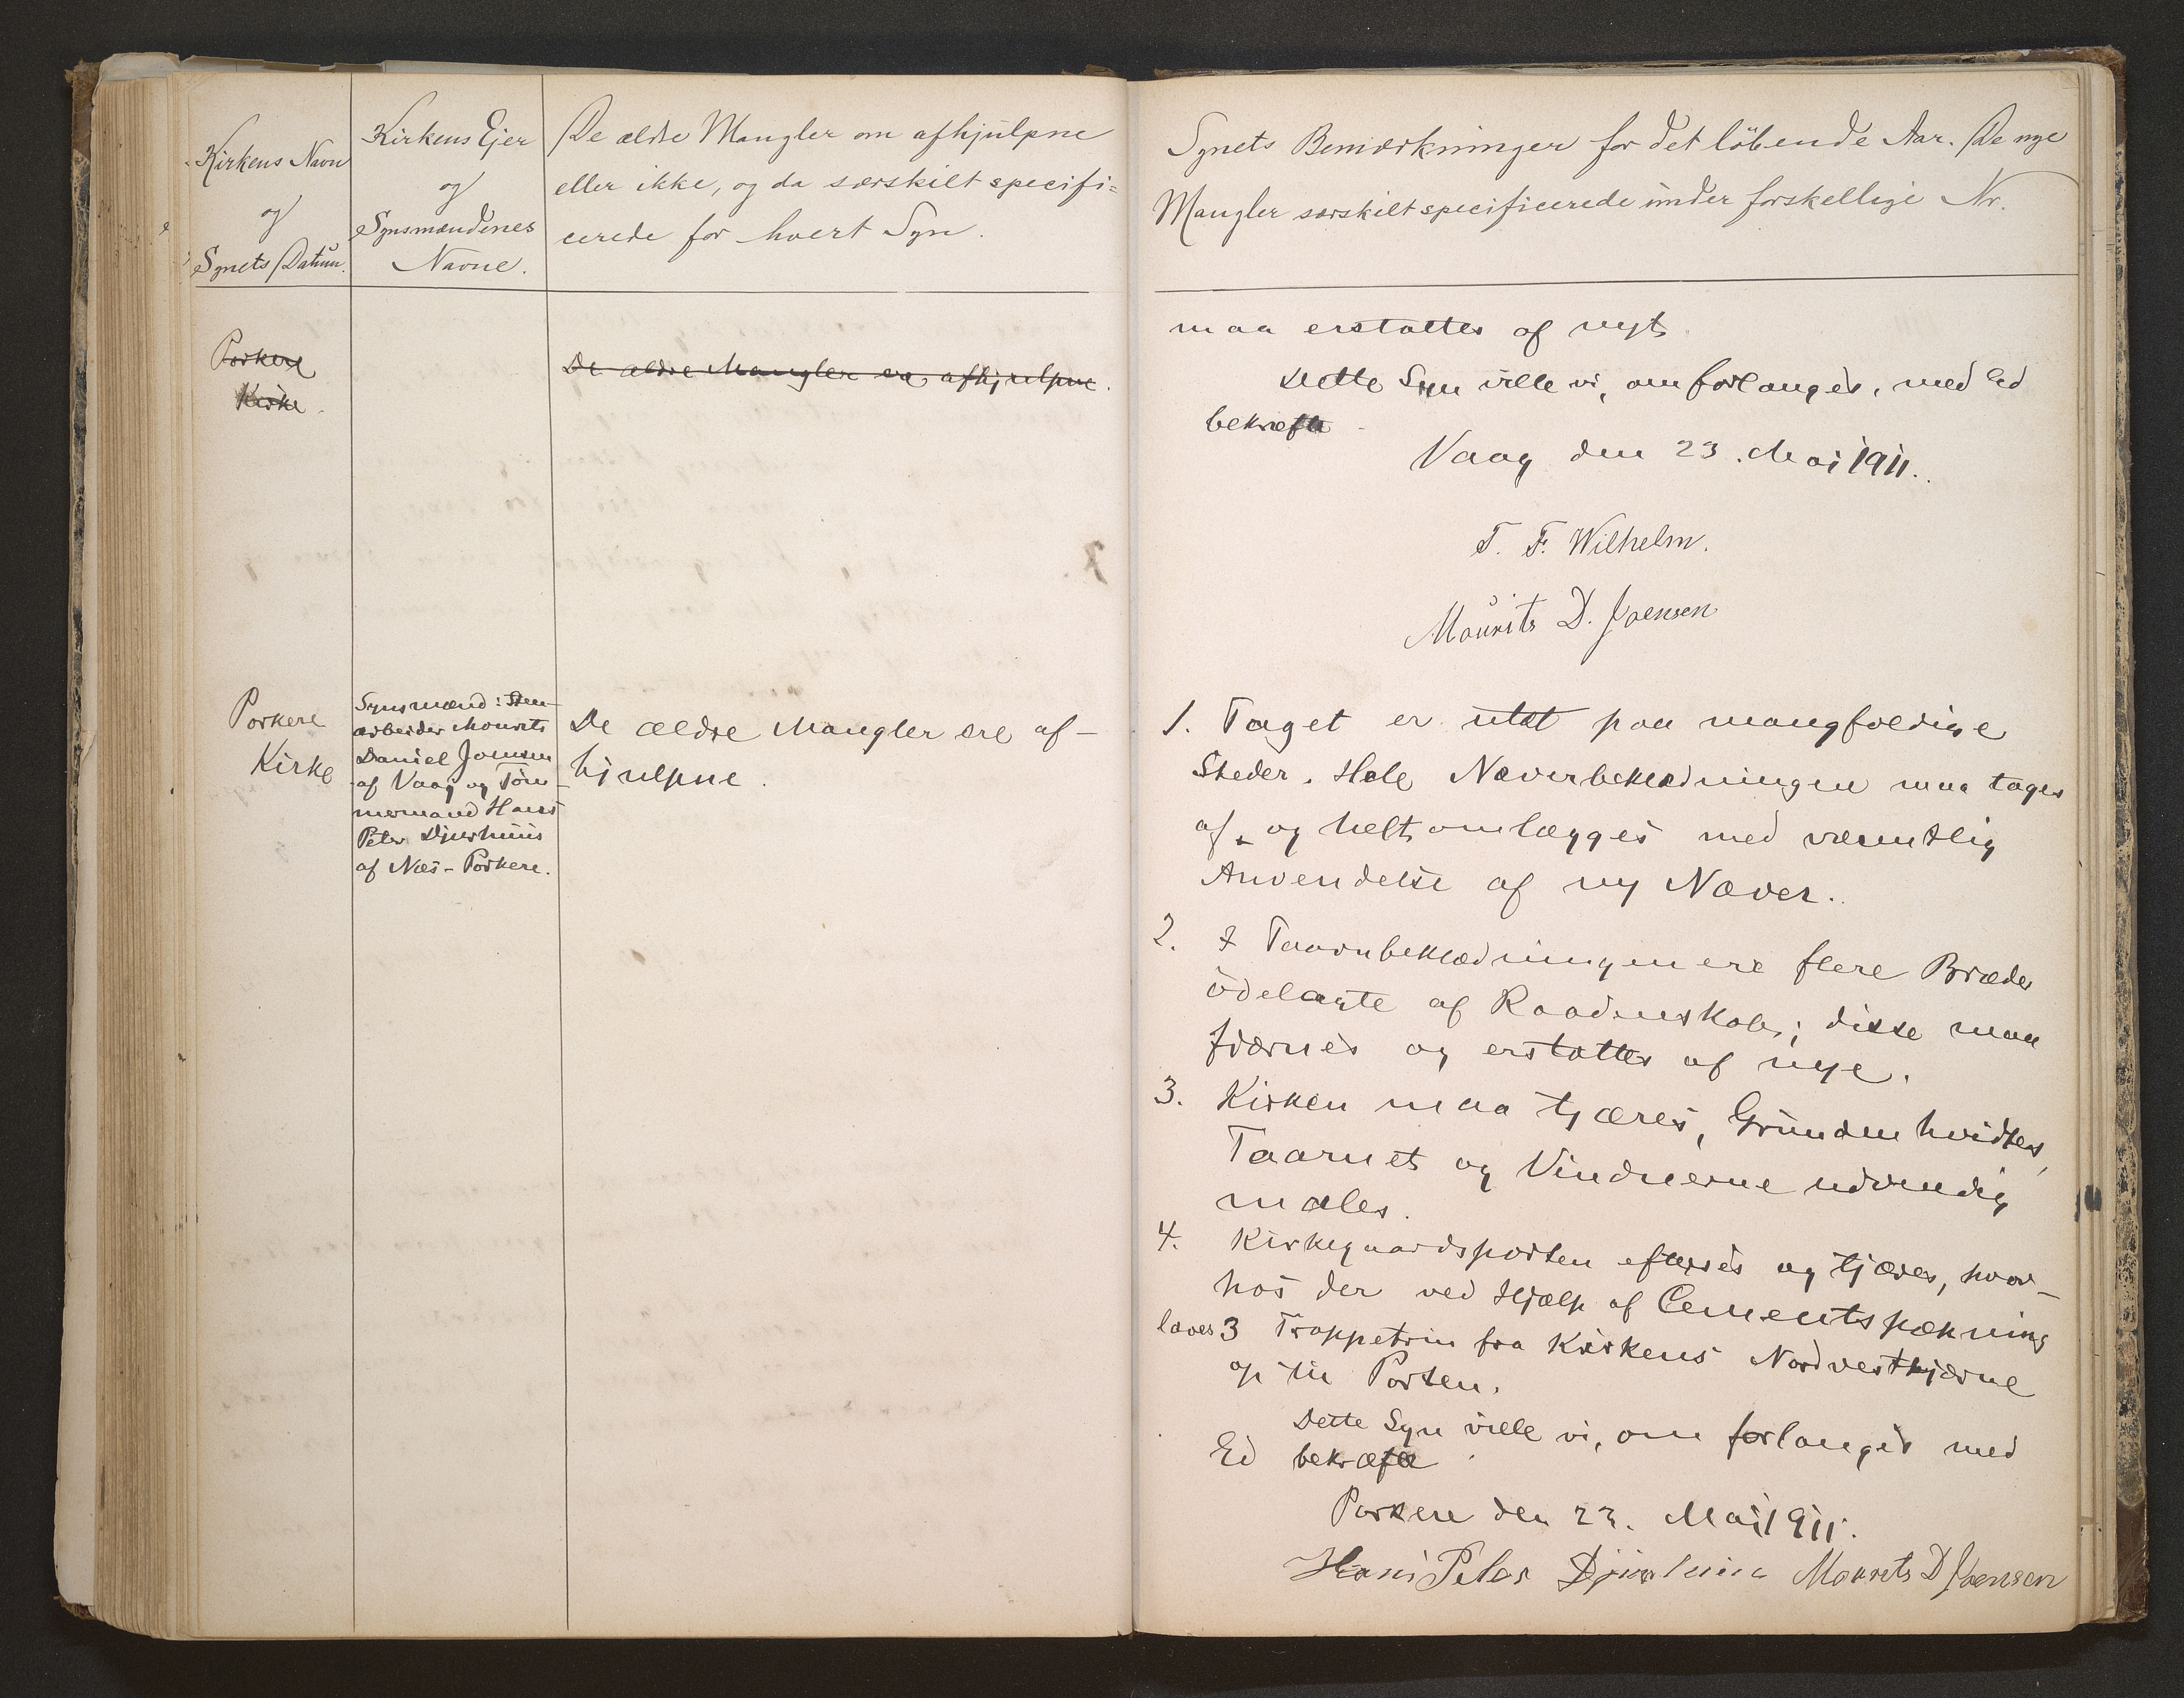 Kirkens Navn
og
Synets Datum.
Kirkens Ejer
og
Synsmændenes
Navne.
De ældre Mangler om afhjulpne
eller ikke, og da særskilt specifi=
cerede for hvert Syn.
Porkere
Kirke.
De ældre Mangler ere afhjulpne.
Porkere
Kirke
Synsmænd: Sten-
arbeider Mourits
Daniel Joensen
af Vaag og Töm-
mermand Hans
Peter Djurhuus
af Næs-Porkere.
De ældre Mangler ere af-
hjulpne.
Synets Bemærkninger for det löbende Aar. De nye
Mangler særskilt specificerede under forskellige Nr.
maa erstattes af nyt.
Dette Syn ville vi, om forlanges, med Ed
bekræfte.
Vaag den 23. Maj 1911.
T. F. Wilhelm.
Mourits D. Joensen
1. Taget er utæt paa mangfoldige
Steder. Hele Næverbeklædningen maa tages
af og helt omlægges med væsentlig
Anvendelse af ny Næver.
2. I Taarnbeklædningen ere flere Brædder
ödelagte af Raadenskab; disse maa
fjærnes og erstattes af nye.
3. Kirken maa tjæres, Grunden hvidtes,
Taarnet og Vinduerne udvendig
males.
4. Kirkegaardsporten efterses og tjæres, hvor-
hos der ved Hjælp af Cementspækning
laves 3 Trappetrin fra Kirkens Nordvesthjørne
op til Porten.
Dette Syn ville vi, om forlanges med
Ed bekræfte.
Porkere den 23. Maj 1911.
Hans Peter Djurhuus Mourits D Joensen